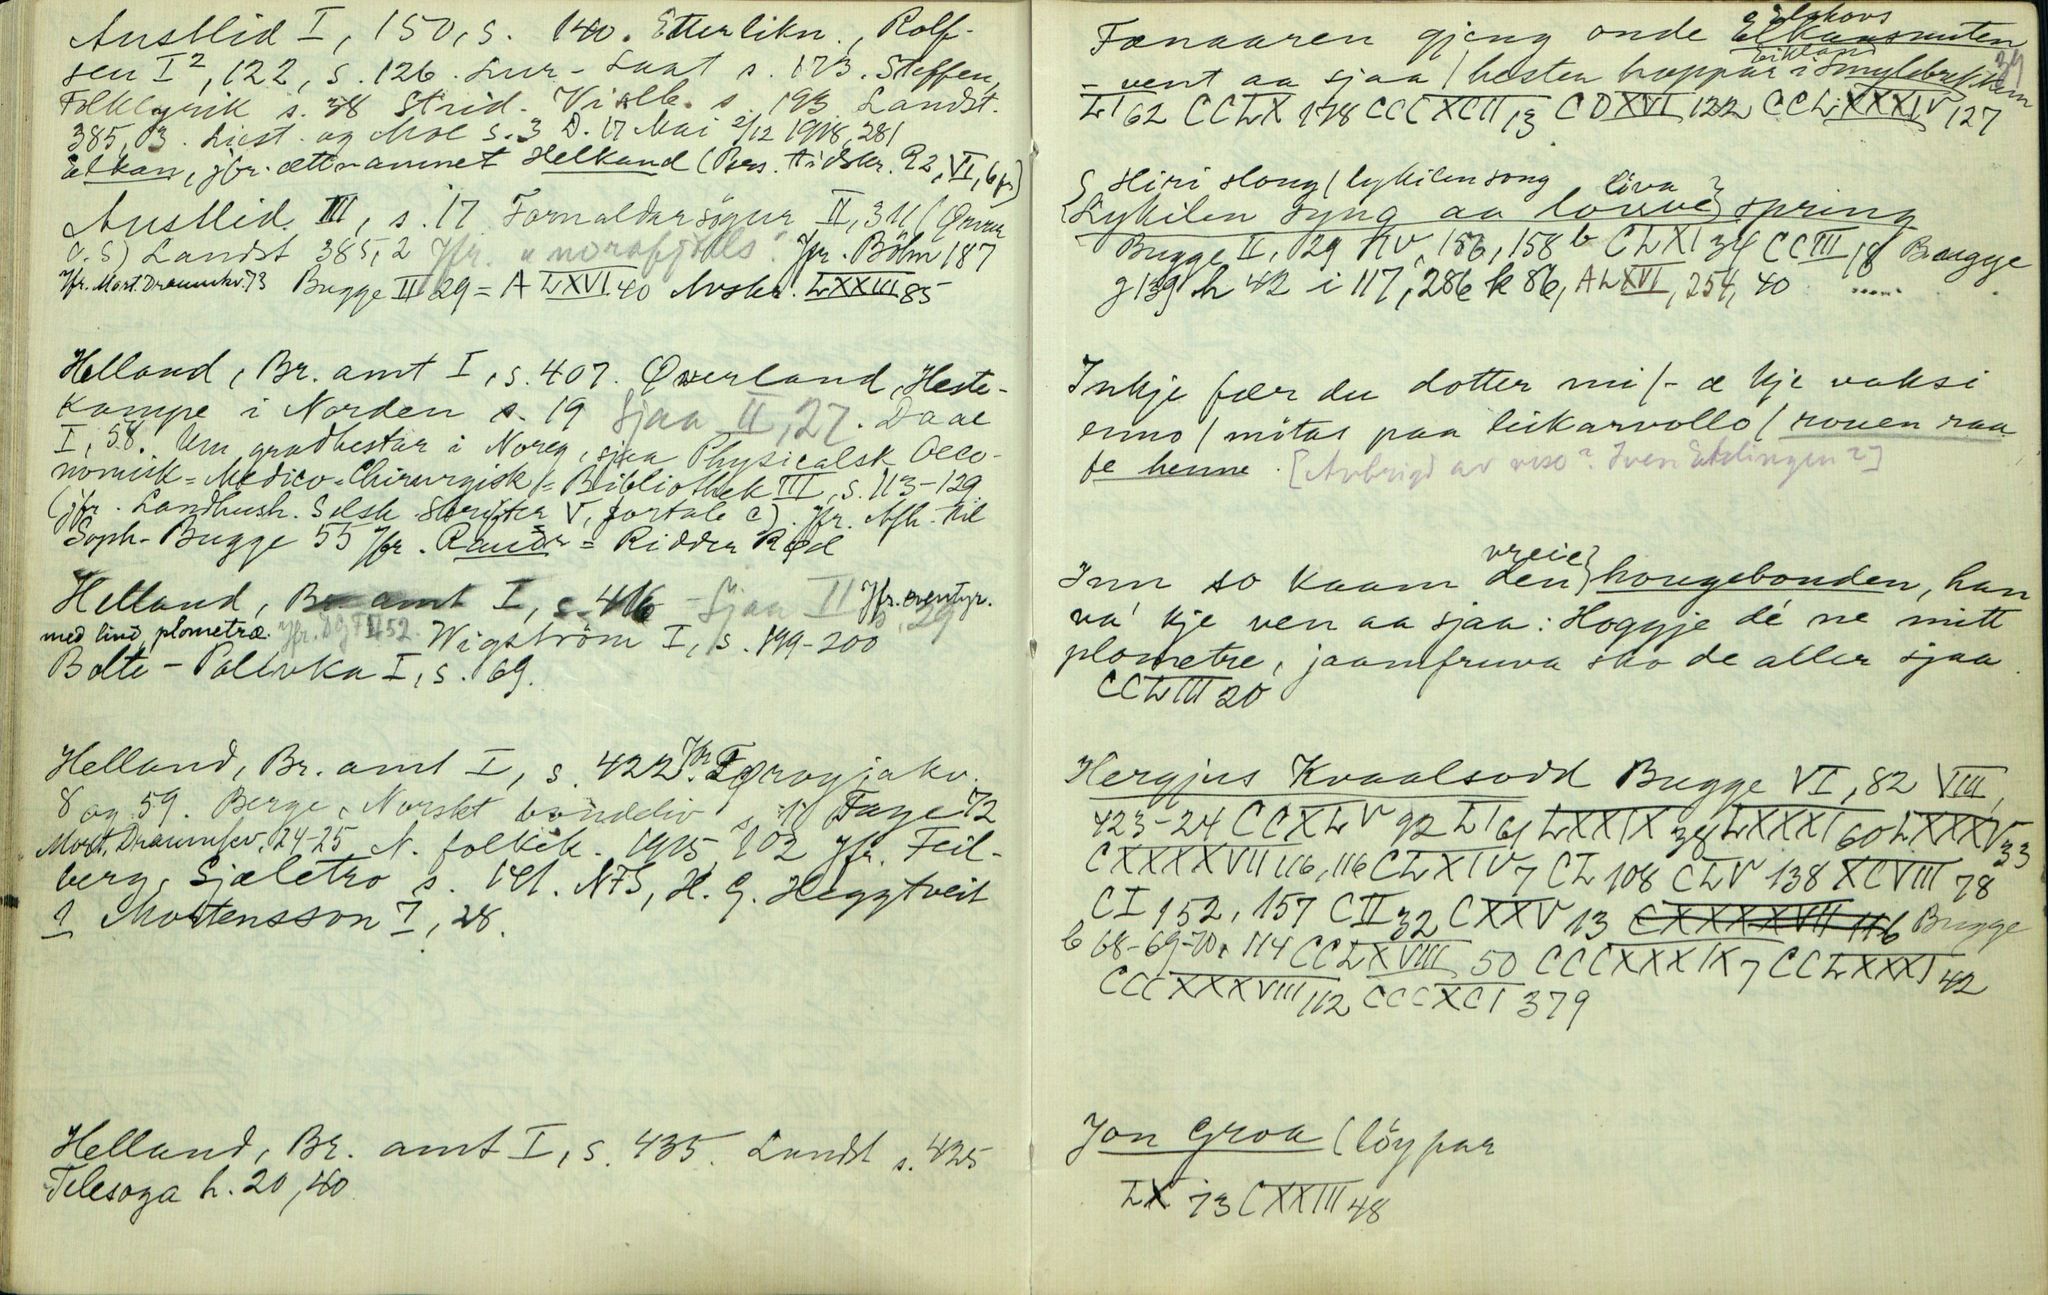 Austlid I, 150, s. 140. Etterlikn., Rolf-
sen I², 122, s. 126. Lur- Laat s. 173. Steffen,
Folklyrik s. 38 Strid. s. 193 Landst.
385, 3. Liest. og Moe s. 3 D. 17 Mai 2/12 1918, 281
Elkan, jfr. ættnamnet Helkand (Pers. tidskr. R2, VI, 6 fr)
Austlid III, s. 17 Fornaldarsögur II, 311 (Qrvar
O. S) Landst 385,2 Jfr. "norafjells". Jfr. Bölm 187
Jfr. Mort. Draumkv. 73 Bugge II 29 = A LXVI 40 Avskr. LXXIII 85
Helland, Br. amt I, s. 407. Qverland, Heste-
kampe i Norden s. 19 Sjaa II, 27. Daae
I, 58. Um gradhestar i Noreg, sjaa Physicalsk Oeco-
nomisk = Medico = Chirurgisk = Bibliothek III, s. 113-129
(jfr. Landhush. Selsk. Skrifter V, fortale c). Jfr. Afh. til
Soph. Bugge 55 Jfr. Rauðr = Ridder Rød
Helland, Br. amt I, s. 416 - Sjaa II, 29 Jfr. eventyr.
med lind, plometræ. Wigström I, s. 199-200
Bolte - Polivka I, s. 69.
Helland, Br. amt I, s. 422. Jfr.
8 og 59. Berge, Norskt bondeliv s. 11 Faye 72
Mort. Draumkv. 24-25 N. folkek. 1915, 102 Jfr. Feil-
berg, Sjæletro s. 141. NFS, H. G. Heggtveit
1 Mortensson I, 28.
Helland, Br. amt I, s. 435. Landst s. 425
Telesoga h. 20, 40
39
Elskovs
Fonaaren gjeng onde Elkaasnuten
- vent aa sjaa / hesten hoppar i
LI 62 CCLX 178 CCCXCII 13 CDXVI 122 CCLXXXIV 127
{ Hiri Hong / lykilen song liva }
{ Lykilen syng aa louve } spring
Bugge II, 129 IV, 156, 158 b CLXI 34 CCIII 18 Bugge
g 139 h 42 i 117, 286 k 86, ALXVI, 254, 40 .....
Inkje fær du dotter mi / - æ kje vaksi
enno / mitas paa leikarvollo / rouen raa-
fe henne. [Avbrigd av vise? Iven Erlingen?]
vreie }
Inn so kaam den } hougebonden, han
va' kje ven aa sjaa: Hoggje dé ne mitt
plometre, jaamfruva sko de aller sjaa.
CCLIII 20
Hergjus Kvaalsodd Bugge VI, 82 VIII,
423-24 CCXLV 92 LI 61 LXXIX 38 LXXXI 60 LXXXV 33
CXXXXVII 116, 116 CLXIV 7 CL 108 CLV 138 XCVIII 78
CI 152, 157 CII 32 CXXV 13 CXXXXVII 116 Bugge
b 68-69-70, 114 CCLXVIII 50 CCCXXXIX 7 CCLXXXI 42
CCCXXXVIII 112 CCCXCI 379
Jon Groa (löypar
LX 73 CXXIII 48